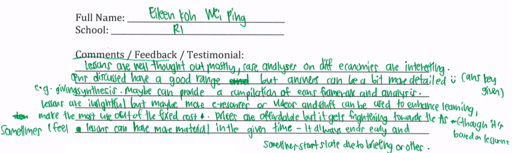 Full Name: Eileen Koh Wei Ping
School: RI
Comments / Feedback / Testimonial:
Lessons are well thought out mostly, case analyses on diff economies are interesting.
Qns discussed have a good range but answers can be a bit more detailed :) (ans key given)
e.g. giving synthesis. Maybe can provide a compilation of econs framework and analysis.
Lessons are insightful but maybe more e-resources or videos and stuff can be used to enhance learning,
make the most use out of the fixed cost. Prices are affordable but it gets frightening towards the (though it's based on lessons
Sometimes I feel lessons can have more material in the given time - it always ends early and
sometimes starts late due to briefing or other.